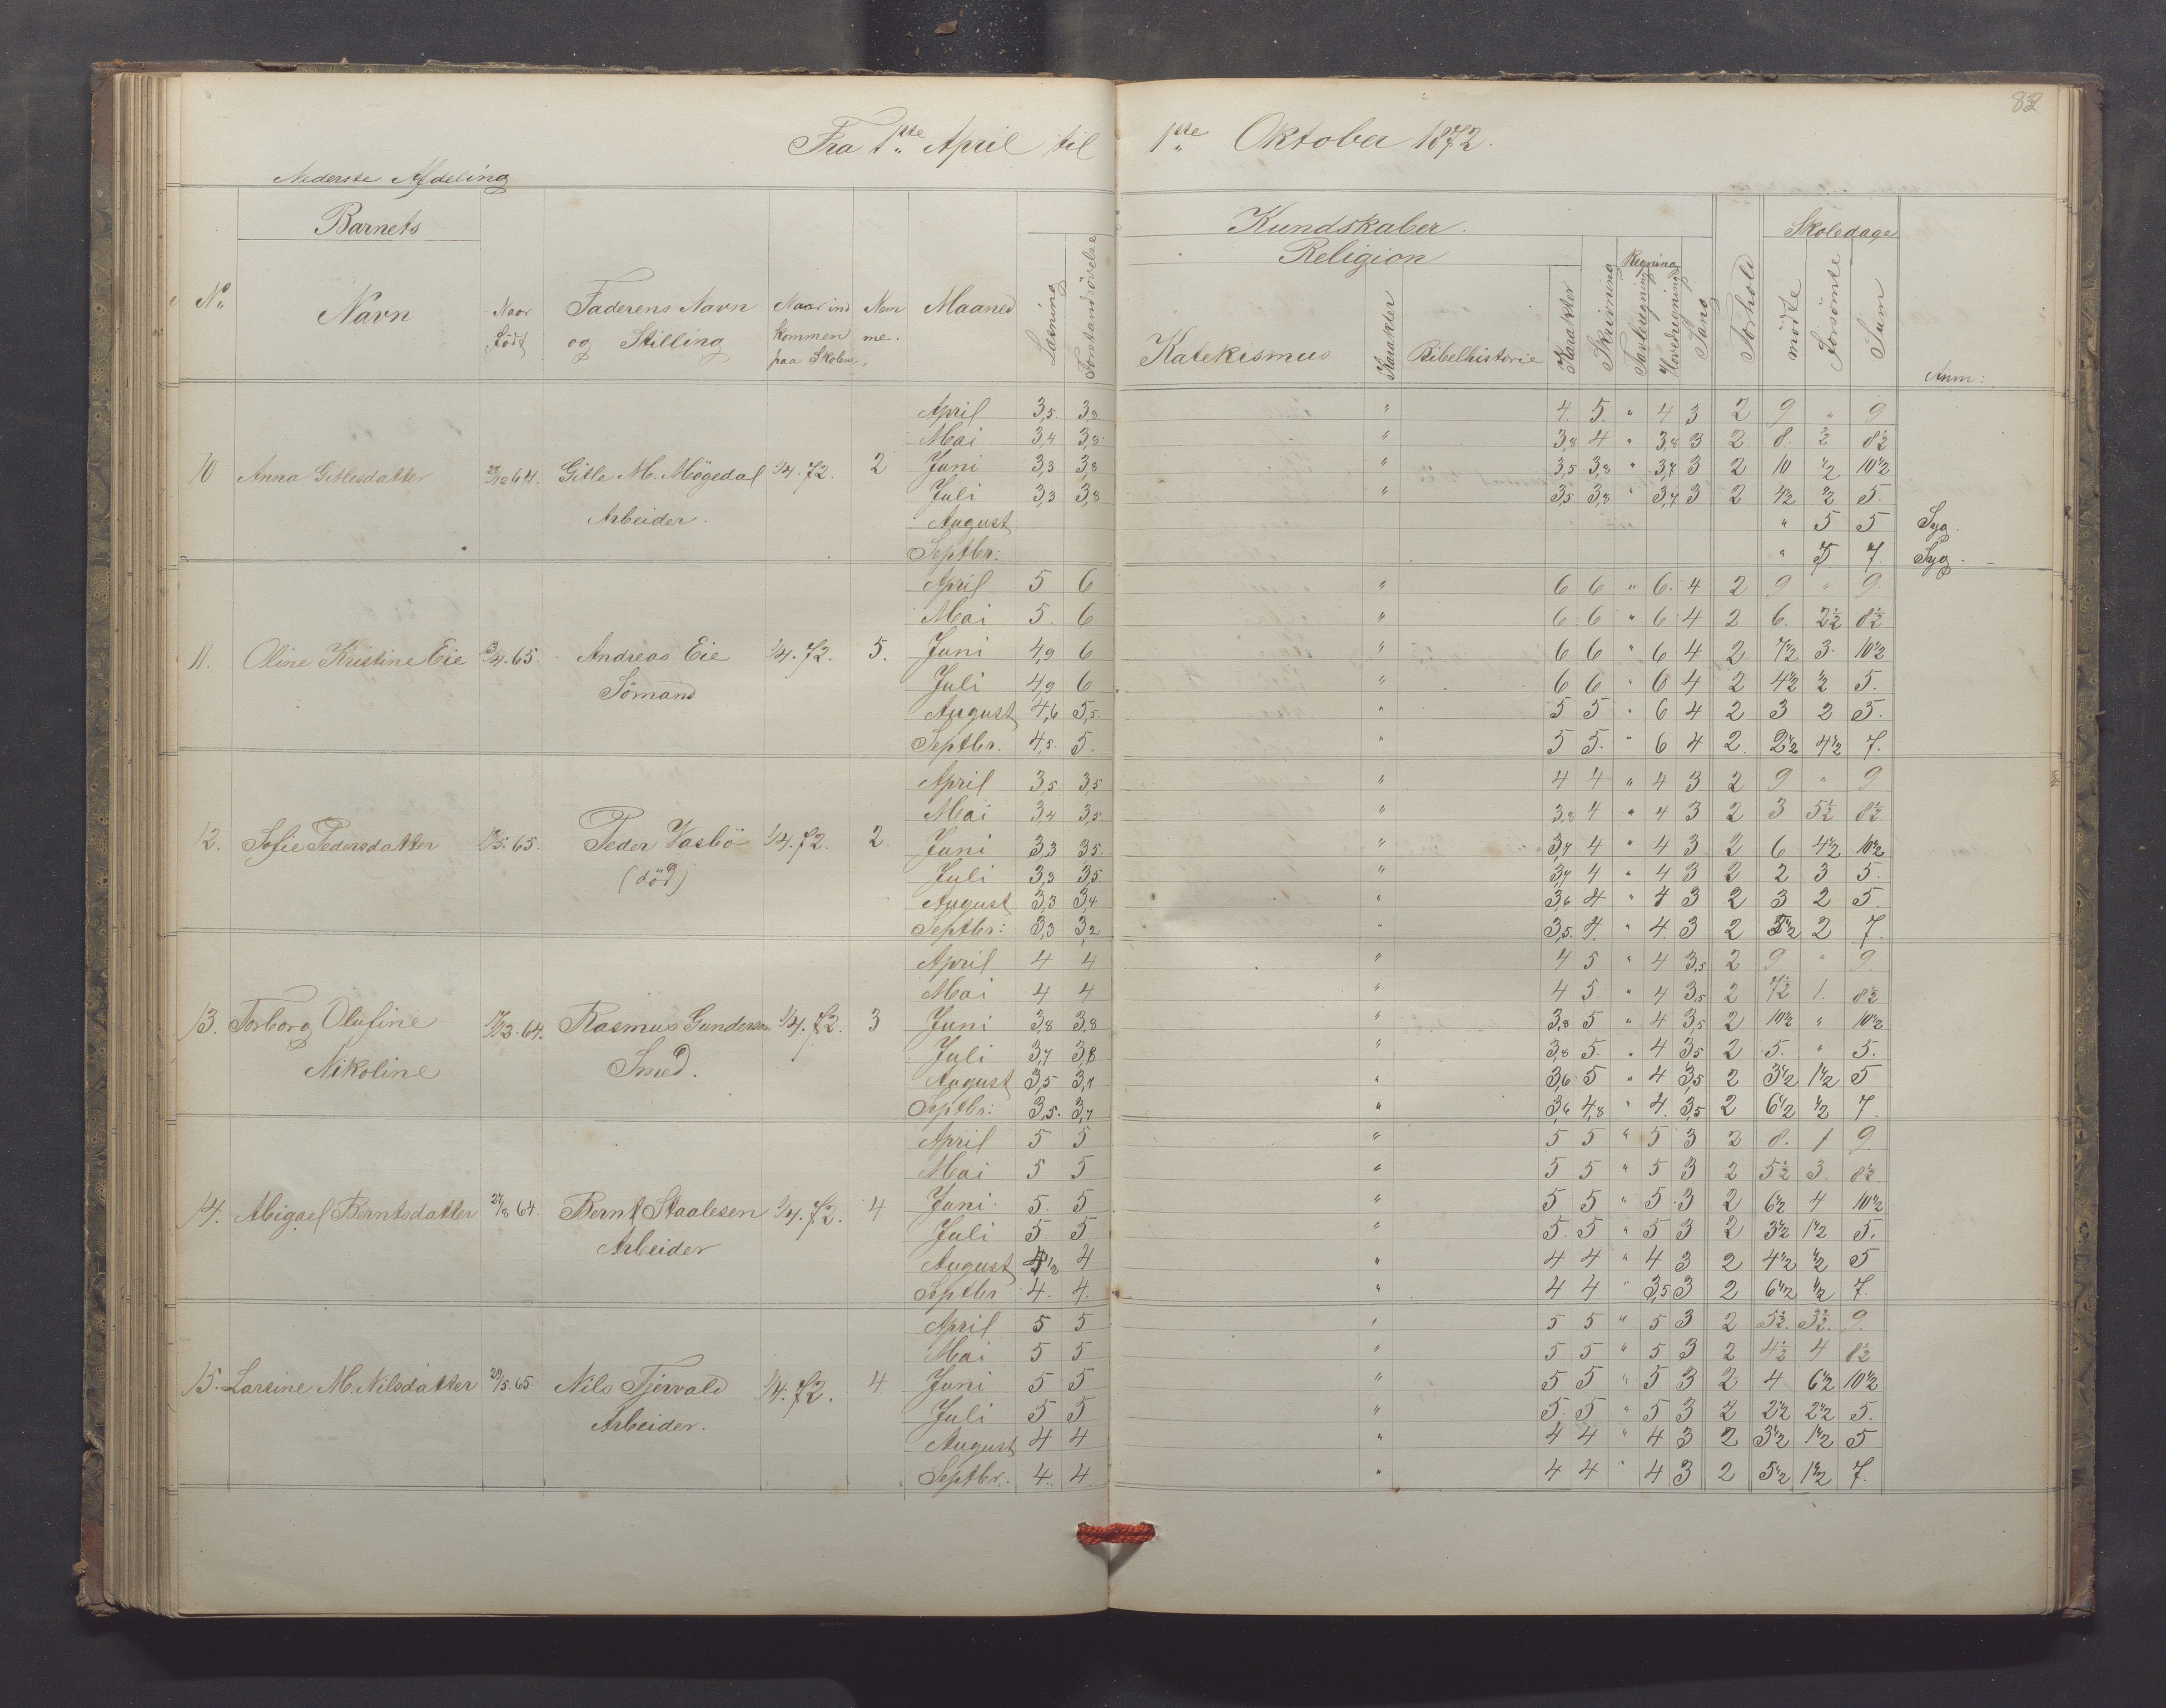 83
Fra 1ste April til 1ste Oktober 1872.
Nederste Afdeling
Barnets Kundskaber. Skoledage
Religion Regning
No Navn Naar født Faderens Navn og Stilling Naar ind kommen paa Skolen. Nem me. Maaned Læsning Forstandsövelse Katekismus Karakter Bibelhistorie Karakter Skrivning Tavleregning Hovedregning Sang Forhold mödte forsömte Sum Anm:
April 3,5. 3,8 " 4. 5. " 4 3 2 9 " 9
Mai 3,4 3,8 " 3,8 4 " 3,8 3 2 8. ½ 8½
10 Anna Gitlesdatter 64. Gitle M. Mögedal 1/4. 72. 2 Juni 3,3 3,8 " 3,5 3,8 " 3,7 3 2 10 ½ 10½
Juli 3,3 3,8 " 3,5 3,8 " 3,7 3 2 4½ ½ 5.
Arbeider. August " 5 5 Syg.
Septbr: " 7 7. Syg.
April 5 6 " 6 6 " 6. 4 2 9 " 9.
Mai 5. 6 " 6 6 " 6 4 2 6. 2½ 8½
11. Oline Kristine Eie 3/4. 65. Andreas Eie 1/4. 72. 5. Juni 4,9 6 " 6 6 " 6 4 2 7½ 3. 10½
Sömand Juli 4,9 6 " 6 6 " 6 4 2 4½ ½ 5.
August 4,6 5,5. " 5 5 " 6 4 2 3 2 5.
Septbr. 4,5. 5. " 5 5. " 6 4 2. 2½ 4½ 7.
April 3,5 3,5 " 4 4 " 4 3 2 9 " 9
Mai 3,4 3,5 " 3,8 4 " 4 3 2 3 5½ 8½
12. Sofie Pedersdatter 65. Peder Vasbö 1/4. 72. 2. Juni 3,3 3,5. " 3,7 4 " 4 3 2 6 4½ 10½
(död) Juli 3,3 3,5. " 3,7 4 " 4 3 2 2 3 5.
August 3,3 3,4 " 3,6 4 " 4 3 2 3 2 5.
Septbr: 3,3 3,2 " 3,5. 4. " 4. 3 2 2 7.
April 4 4 " 4 5 " 4 3,5 2 9 " 9.
Mai 4 4 " 4 5. " 4 3,5 2 7½ 1. 8½
13. Torborg Olufine 64. Rasmus Gunderson 1/4. 72. 3 Juni 3,8 3,8 " 3,8 5 " 4 3,5 2 10½ " 10½
Nikoline Smed. Juli 3,7 3,8 " 3,8 5. " 4 3,5 2 5. " 5.
August 3,5 3,7 " 3,6 5 " 4 3,5 2 3½ 1½ 5
Septbr: 3,5. 3,7 " 3,6 4,8 " 4. 3,5 2 6½ ½ 7.
April 5 5 " 5 5 " 5 3 2 8. 1 9.
Mai 5 5 " 5 5 " 5 3 2 5½ 3. 8½
14. Abigael Berntsdatter 27/8 64. Bernt Staalesen 1/4. 72. 4 Juni. 5. 5 " 5 5 " 5. 3 2 6½ 4 10½
Arbeider Juli 5. 5 " 5. 5 " 5 3 2 3½ 1½ 5.
August 4½ 4 " 4 4 " 4 3 2 4½ ½ 5
Septbr 4. 4. " 4 4 " 3,5 3 2 6½ ½ 7.
April 5 5 " 5 5 " 5 3 2 5½. 3½. 9.
Mai 5 5 " 5 5 " 5 3 2 4½ 4 8½
15. Larsine M. Nilsdatter 29/5. 65. Nils Tjervald 1/4. 72. 4. Juni 5 5 " 5 5 " 5 3 2 4 6½ 10½
Arbeider. Juli 5 5 " 5. 5 " 5 3 2 2½ 2½ 5.
August 4 4 " 4 4 " 4 3 2 3½ 1½ 5
Septbr. 4. 4. " 4 4 " 4 3 2 5½ 1½ 7.